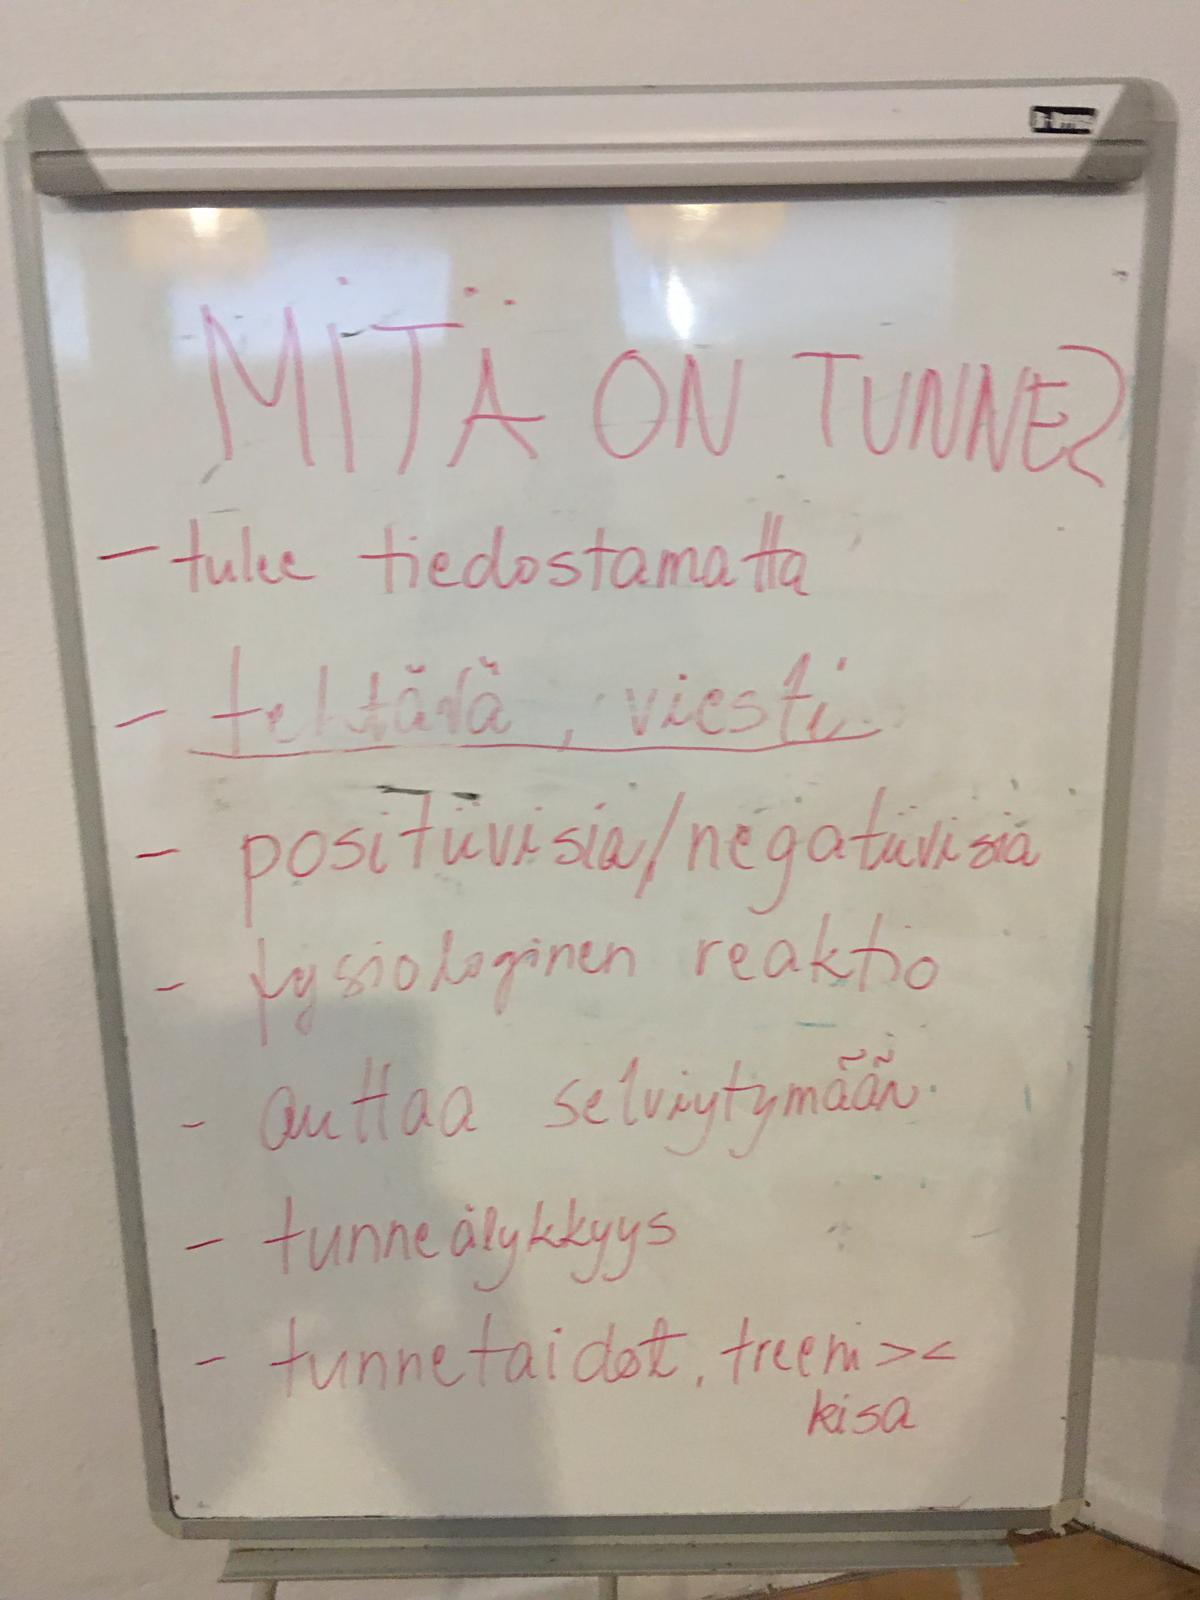 MITÄ ON TUNNE?
- tulee tiedostamatta
- tehtävä, viesti
- positiivisia/negatiivisia
- fysiologinen reaktio
- auttaa selviytymään
- tunneälykkyys
- tunnetaidot, treeni ><
kisa